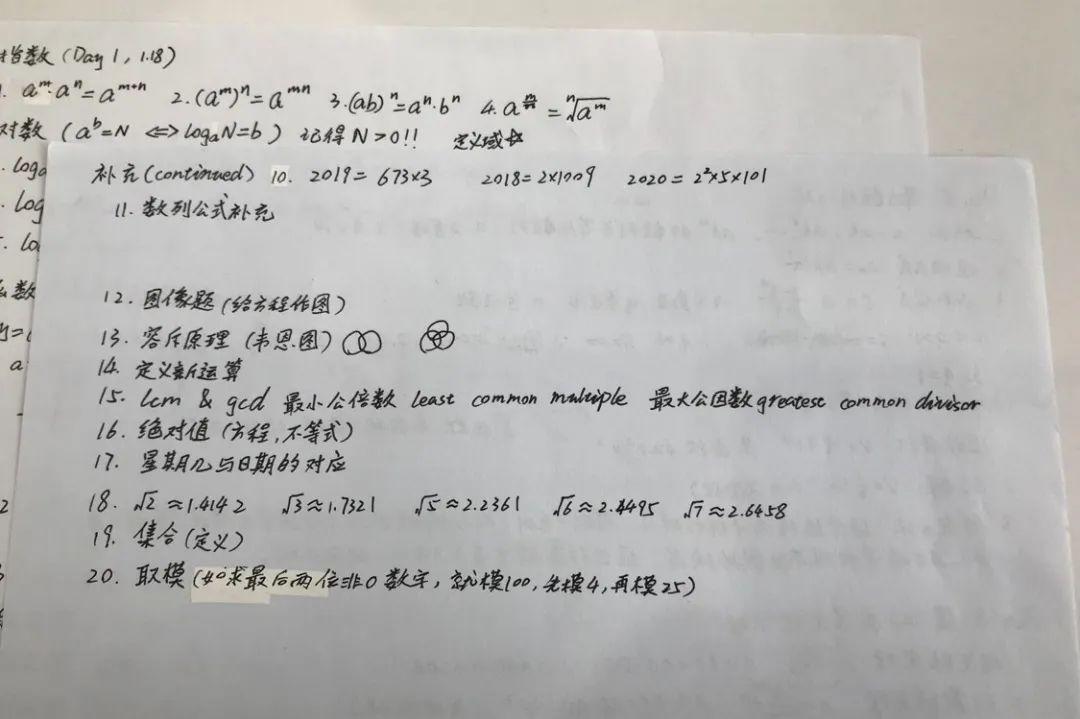 指数 (Day 1, 1.18)
1. a^m·a^n=a^{m+n} 2.(a^m)^n=a^{mn} 3.(ab)^n=a^n·b^n 4. a^{m/n}=ⁿ√a^m
对数 (a^b=N ⟺ log_a N=b) 记得 N>0!! 定义域
补充(continued) 10. 2019=673×3 2018=2×1009 2020=2²×5×101
. log_a
11. 数列公式补充
. log
. lo
12. 图像题(给方程作图)
函数
y=
13. 容斥原理 (韦恩图)
a
14. 定义新运算
15. lcm & gcd 最小公倍数 least common multiple 最大公因数 greatest common divisor
16. 绝对值(方程,不等式)
17. 星期几与日期的对应
18. √2≈1.4142 √3≈1.7321 √5≈2.2361 √6≈2.4495 √7≈2.6458
19. 集合(定义)
20. 取模(如求最后两位非0数字,就模100,先模4,再模25)